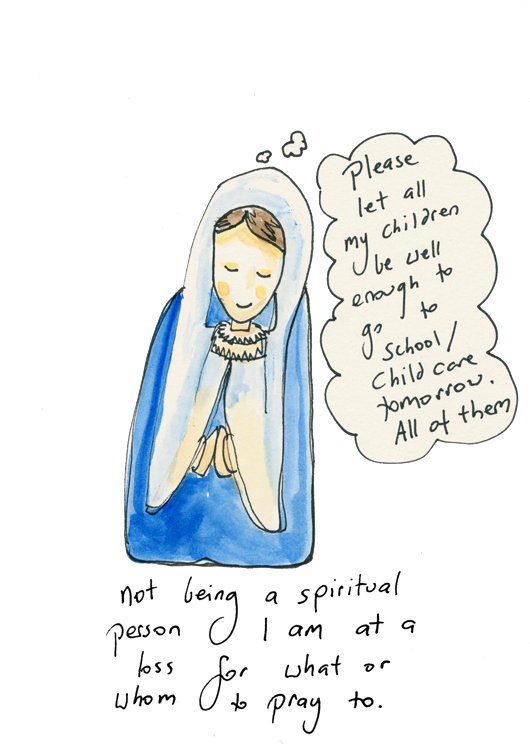 Please
let all
my children
be well
enough to
go to
school/
Child care
tomorrow.
All of them
not being a spiritual
person I am at a
loss for what or
whom to pray to.